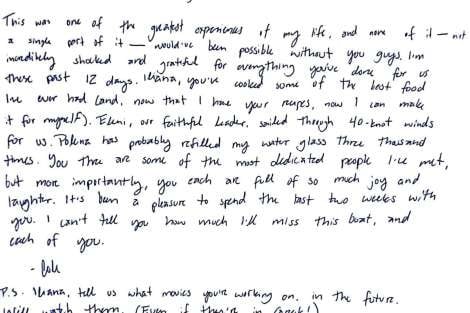 This was one of the greatest experiences of my life, and none of it — not
a single part of it — would've been possible without you guys. I'm
incredibly shocked and grateful for everything you've done for us
these past 12 days. Iliana, you've cooked some of the best food
I've ever had (and, now that I have your recipes, now I can make
it for myself). Eleni, our faithful leader, sailed through 40-knot winds
for us. Polina has probably refilled my water glass three thousand
times. You three are some of the most dedicated people I've met,
but more importantly, you each are full of so much joy and
laughter. It's been a pleasure to spend the last two weeks with
you. I can't tell you how much I'll miss this boat, and
each of you.
-
P.S. Iliana, tell us what movies you're working on, in the future.
We'll watch them. (Even if they're in Greek!)